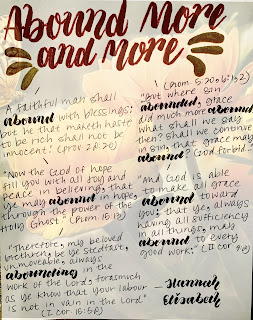 Abound More
and More
A faithful man shall
abound with blessings:
but he that maketh haste
to be rich shall not be
innocent. (Prov 28:20)
"Now the God of hope
fill you with all joy and
peace in believing, that
ye may abound in hope,
through the power of the
Holy Ghost." (Rom. 15:13)
"Therefore, my beloved
brethren, be ye stedfast,
unmoveable, always
abounding in the
work of the Lord, forasmuch
as ye know that your labour
is not in vain in the Lord"
(I Cor 15:58)
(Rom. 5:20, 6:1,2)
"But where sin
abounded, grace
did much more abound
what shall we say
then? Shall we continue
in sin, that grace may
abound? God forbid..."
"And God is able
to make all grace
abound toward
you; that ye, always
having all sufficiency
in all things, may
abound to every
good work:" (II Cor 9:8)
-Hannah
Elizabeth